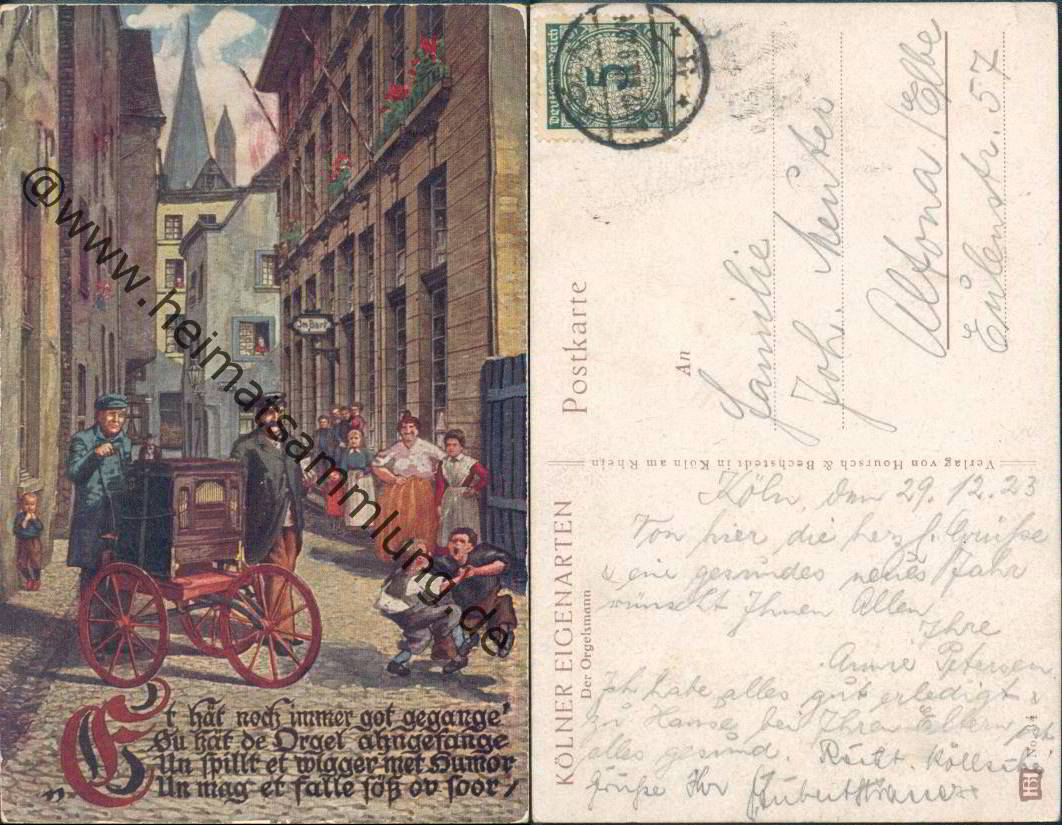 @www.heimatsammlung.de
Im Darl
Et hät noch immer got gegange'
Su hät de Orgel ahngefange
Un spillt et wigger met Humor
Un mag et falle söß ov soor/
Deutsches Reich
5
Postkarte
An
Familie
Joh. Meuter
Altona /Elbe
Eulenstr. 57
Verlag von Hoursch & Bechstedt in Köln am Rhein
KÖLNER EIGENARTEN
Der Orgelsmann
Köln, den 29.12.23
Von hier die herzl. Grüße
u ein gesundes neues Jahr
wünscht Ihnen Allen
Ihre
Anne Petersen
Ich habe alles gut erledigt
zu Hause bei Ihren Eltern ist
alles gesund. Recht Köllsche
Grüße Ihr